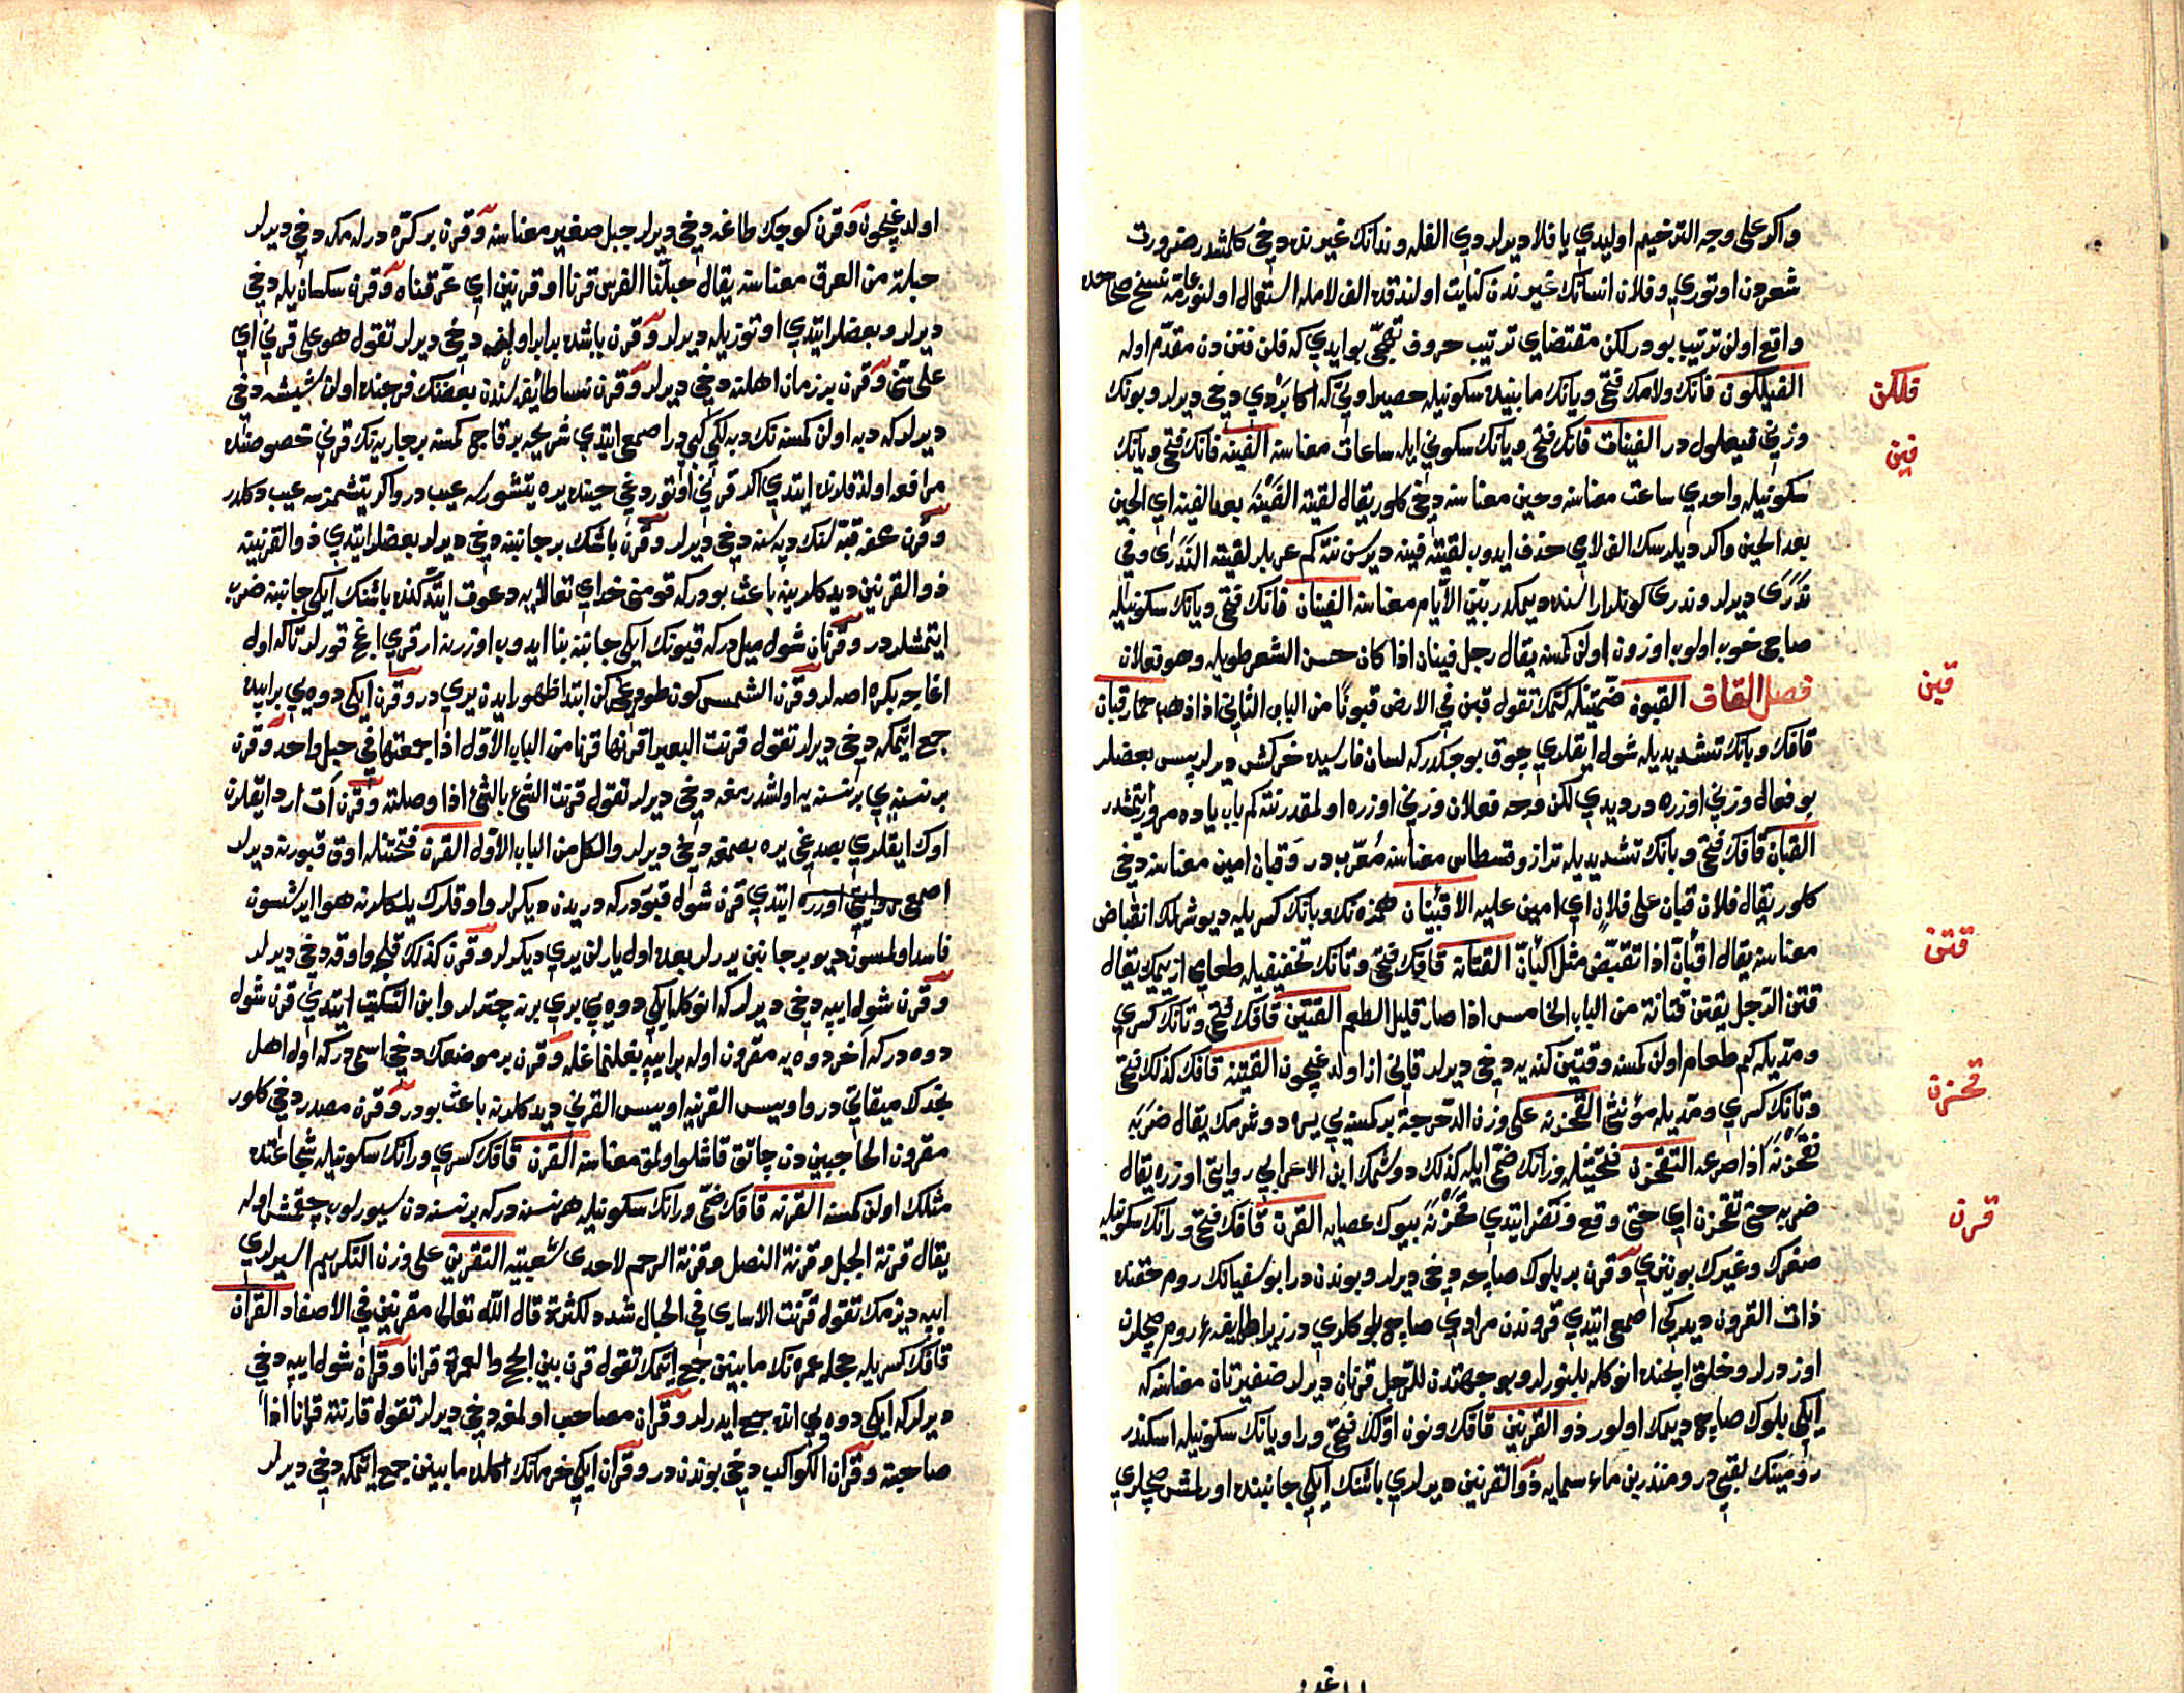 واكر على وجه الترخيم اوليدي يا فلا ديرلر دي الفله وندانك غيرنده دخي كلمشدر ضرورت
شعردن اوتوري وفلان انسانك غيرندن كنايت اولندقده الف لامله استعمال اولنور عامة نسخ صحاحده
واقع اولن ترتيب بودر لكن مقتضاي ترتيب حروف تهجي بو ايدي كه فلن فنن دن مقدم اوله
فلكن
الفيلكون فانك ولامك فتحي ويانك مابينده سكونيله حصير اوتي كه اكا بردي دخي ديرلر وبونك
وزني فيعلول در الفينات فانك فتحي ويانك سكوني ايله ساعات معناسنه الفينه فانك فتحي ويانك
فين
سكونيله واحدي ساعت معناسنه وحين معناسنه دخي كلور يقال لقيته الفينة بعد الفينة اي الحين
بعد الحين واكر ديلرسك الف لامي حذف ايدوب لقيته فينة ديرسن نته كم عربلر لقيته الندرى وفي
ندرى ديرلر وندرى كونلر اراسنده ديمكدر بين الايام معناسنه الفينان فانك فتحي ويانك سكونيله
صاچي خوب اولوب اوزون اولن كمسنه يقال رجل فينان اذا كان حسن الشعر طويله وهو فعلان
قبن
فصل القاف القبون ضمتيله كتمك تقول قبن في الارض قبونا من الباب الثاني اذا ذهب حمار قبان
قافك وبانك تشديديله شول ايقلري چوق بوجكدر كه لسان فارسيده خركش ديرلر پس بعضلر
بو فعال وزني اوزره در ديدي لكن موجه فعلان وزني اوزره اولمقدر نته كم باب باده مرور ايتمشدر
القبان قافك فتحي وبانك تشديديله ترازو قسطاس معناسنه معرب در وقبان امين معناسنه دخي
كلور يقال فلان قبان على فلان اي امين عليه الاقبئنان همزه نك وبانك كسريله ديوشرلمك انقباض
معناسنه يقال اقبأن اذا تقبض مثل اكبأن القتانه قافك فتحي وتانك تخفيفيله طعامي از يمك يقال
قتن
قتن الرجل يقتن قتانة من الباب الخامس اذا صار قليل الطعم القتين قافك فتحي وتانك كسري
ومديله كم طعام اولن كمسنه وقتين كنه يه دخي ديرلر قاني از اولدغيچون القتينه قافك كذلك فتحي
وتانك كسري ومديله مؤنثي القحزنه على وزن الدحرجة بر كمسنه يي يره دوشرمك يقال ضربه
قحزن
فقحزنه اذا صرعه التقحزن فتحتيله وزانك ضمي ايله كذلك دوشمك ابن الاعرابي روايتي اوزره يقال
ضربه حتى تقحزن اي حتى وقع ونضر ايتدي قحزنة بيوك عصايه القرن قافك فتحي ورانك سكونيله
قرن
صغرك وغيرك بوينزي وقرن بر بلوك صاچه دخي ديرلر وبوندن در ابو سفيانك روم حقنده
ذات القرون ديدكي اصمعي ايتدي قروندن مرادي صاچ بلوكلري در زيرا طايفه روم صچلرن
اوزدرلر وخلق ايچنده انوكله بلنورلر وبو جهتدن للرجل قرنان ديرلر ضفيرتان معناسنه كه
ايكي بلوك صاچ ديمك اولور ذو القرنين قافك ونون اولك فتحي ورا ويانك سكونيله اسكندر
روميتك لقبي در ومنذر بن ماء سمايه ذو القرنين ديرلردي باشنك ايكي جانبنده اورلمش صچلري
اولدغيچون وقرن كوچك طاغه دخي ديرلر جبل صغير معناسنه وقرن بر كره درلمكه دخي ديرلر
حلبة من العرق معناسنه يقال حلبنا الفرس قرنا او قرنين اي عرقناه وقرن سكسان ييله دخي
ديرلر وبعضلر ايتدي اوتوز ييله ديرلر وقرن ياشده برابر اولنه دخي ديرلر تقول هو على قرني اي
على سني وقرن بر زمان اهلنه دخي ديرلر وقرن نسا طائفه سندن بعضنك فرجنده اولن شيشه دخي
ديرلر كه دبه اولن كمسنه نك دبه لكي كبي در اصمعي ايتدي شريحه بر قاچ كمسنه بر جاريه نك قرني خصوصنده
مرافعه اولندقلرنده ايتدي اكر قرني اوتوردغي حينده يره يتشورسه عيب در واكر يتشمزسه عيب دكلدر
وقرن عفه قبه لنك دپه سنه دخي ديرلر وقرن باشك بر جانبنه دخي ديرلر بعضلر ايتدي ذو القرنينه
ذو القرنين ديدكلرينه باعث بودر كه قومني خداي تعالايه دعوت ايتدكنده باشنك ايكي جانبنه ضرب
ايتمشلردر وقرنان شول ميل در كه قيونك ايكي جانبنه بنا ايدوب اوزرنه ارقري اغج قورلر تا كه اول
اغاجه بكره اصه لر وقرن الشمس كون طوغركن ابتدا ظهور ايدن يري در وقرن ايكي دوه يي بر ايپده
جمع ايتمكه دخي ديرلر تقول قرنت البعير اقرنها قرنا من الباب الاول اذا جمعتها في حبل واحد وقرن
بر نسنه يي بر نسنه يه اولشدرمغه دخي ديرلر تقول قرنت الشئ بالشئ اذا وصلته وقرن آت ارد ايقلرن
اوك ايقلري بصدغي يره بصمغه دخي ديرلر والكل من الباب الاول القرن فتحتيله اوق قبورنه ديرلر
اصمعي روايتي اوزره ايتدي قرن شول قبوردر كه دريدن ديكرلر واوقلرك يلكلرنه هوا ايرشسون
فاسد اولمسون ديو بر جانبن يررلر بعده اول يارلن يري ديكرلر وقرن كذلك قليچ واوقه دخي ديرلر
وقرن شول ايپه دخي ديرلر كه انوكله ايكي دوه يي بري برنه چترلر وابن السكيت ايتدي قرن شول
دوه در كه آخر دوه يه مقرون اوله بر ايپه بغلنماغله وقرن بر موضعك دخي اسمي در كه اول اهل
نجدك ميقاتي در واويس القرنيه اويس القرني ديدكلرينه باعث بودر وقرن مصدر دخي كلور
مقرون الحاجبين دن چاتق قاشلو اولمق معناسنه القرن قافك كسري ورانك سكونيله شجاعتده
مثلك اولن كمسنه القرنه قافك ضمي ورانك سكونيله هر نسنه در كه بر نسنه دن سيورلوب چقمش اوله
يقال قرنة الجبل وقرنة النصل وقرنة الرحم لاحدى شعبتيه التقرين على وزن التكريم اسيرلري
ايپه ديزمك تقول قرنت الاسارى في الحبال شدد لكثرة قال الله تعالى مقرنين في الاصفاد القران
قافك كسريله حجله عمره نك مابينن جمع ايتمك تقول قرن بين الحج والعمرة قرانا وقران شول ايپه دخي
ديرلر كه ايكي دوه يي انده جمع ايدرلر وقران مصاحب اولمغه دخي ديرلر تقول قارنته قرانا اذا
صاحبته وقران الكواكب دخي بوندن در وقران ايكي خرمانك اكلده مابينن جمع ايتمكه دخي ديرلر